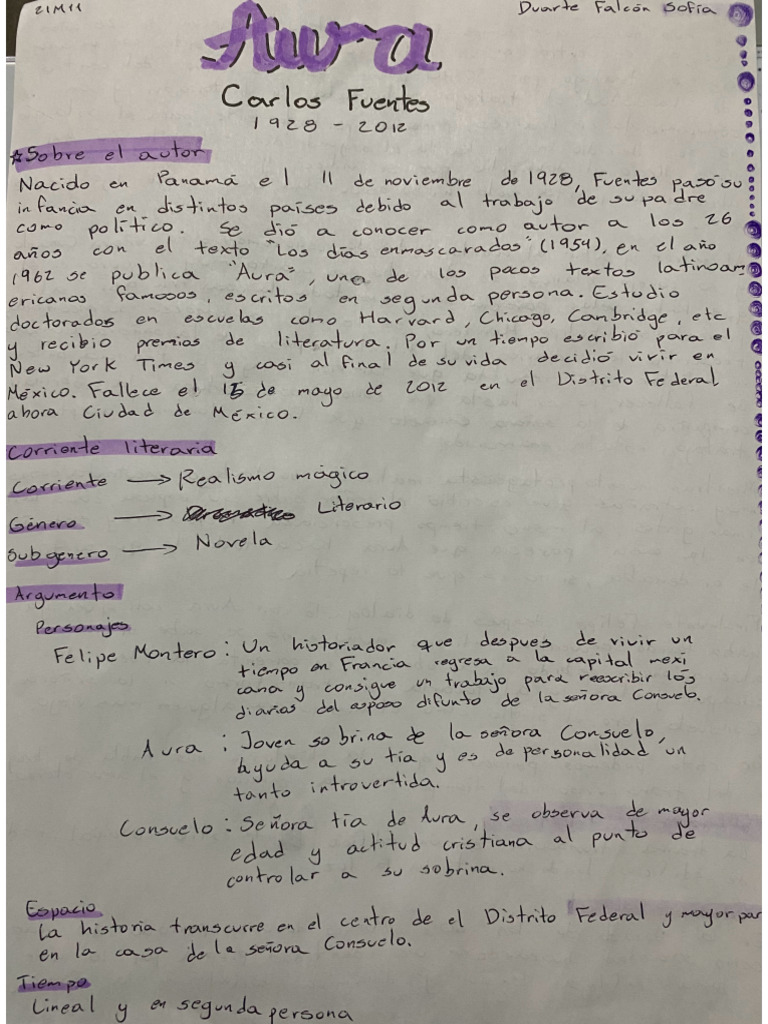 21M11
Duarte Falcón Sofía
Aura
Carlos Fuentes
1928 - 2012
☆Sobre el autor
Nacido en Panamá el 11 de noviembre de 1928, Fuentes pasó su
infancia en distintos países debido al trabajo de su padre
como político. Se dió a conocer como autor a los 26
años con el texto "Los días enmascarados" (1954), en el año
1962 se publica "Aura", uno de los pocos textos latinoam
ericanos famosos, escritos en segunda persona. Estudio
doctorados en escuelas como Harvard, Chicago, Canbridge, etc
y recibio premios de literatura. Por un tiempo escribió para el
New York Times y casi al final de su vida decidió vivir en
México. Fallece el 15 de mayo de 2012 en el Distrito Federal
ahora Ciudad de México.
Corriente literaria
Corriente → Realismo mágico
Género → Literario
Subgenero → Novela
Argumento
Personajes
Felipe Montero: Un historiador que despues de vivir un
tiempo en Francia regresa a la capital mexi
cana y consigue un trabajo para reescribir los
diarios del esposo difunto de la señora Consuelo.
Aura : Joven sobrina de la señora Consuelo,
ayuda a su tía y es de personalidad un
tanto introvertida.
Consuelo : Señora tía de Aura, se observa de mayor
edad y actitud cristiana al punto de
controlar a su sobrina.
Espacio
La historia transcurre en el centro de el Distrito Federal y mayor par
en la casa de la señora Consuelo.
Tiempo
Lineal y en segunda persona